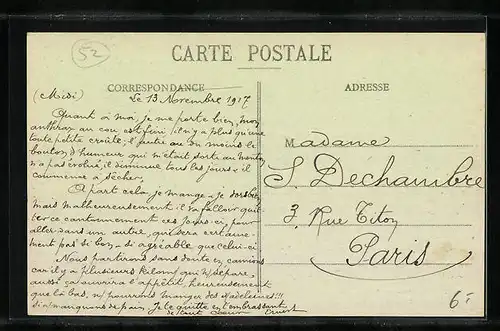 52
CARTE POSTALE
CORRESPONDANCE
ADRESSE
(Midi) Le 13 Novembre 1917
Quant à moi, je me porte bien, mon
anthrax au cou est fini il n'y a plus qu'une
toute petite croûte; l'autre ou du moins le
bouton d'humeur qui m'était sorti au menton
n'a pas évolué, il diminue tous les jours & il
commence à sécher.
A part cela, je mange & je dors bien
mais malheureusement il va falloir quit-
ter ce cantonnement ces jours-ci, pour
aller dans un autre, qui sera certaine-
ment pas si bon & si agréable que celui-ci
Nous partirons sans doute en camions
car il y a plusieurs kilom. qui n/ sépare,
aussi ça ouvrira l'appétit, heureusement
que là bas, n/ pourrons manger des Madeleines!!!
si n/ manquons de pain. Je te quitte en t'embrassant
de tout cœur Ernest
Madame
S. Dechambre
3, Rue Titon
Paris
6-